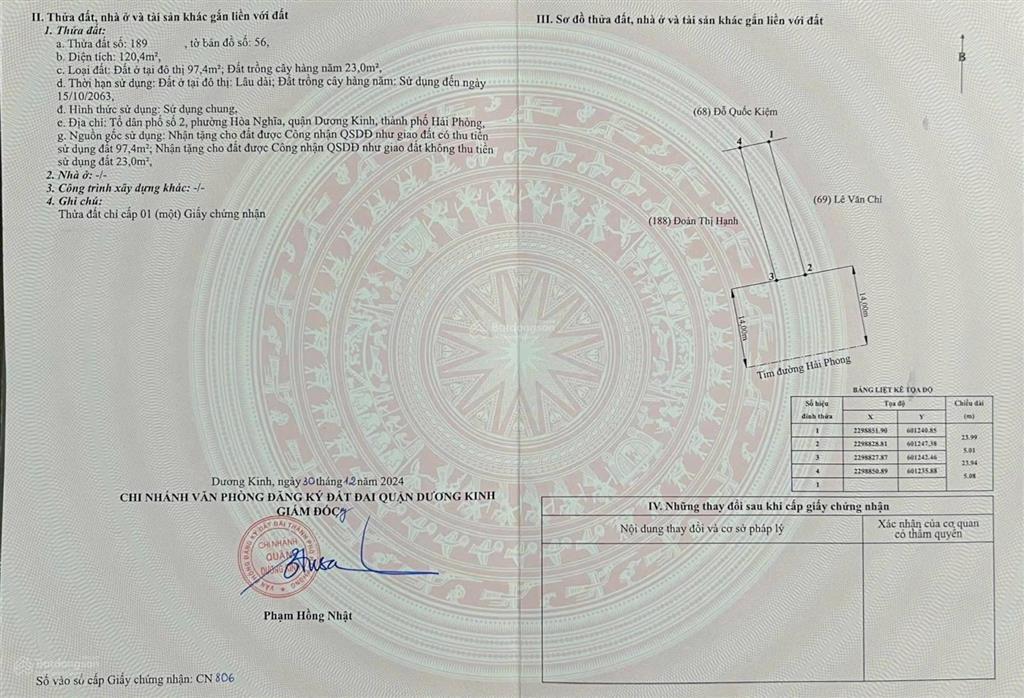 II. Thửa đất, nhà ở và tài sản khác gắn liền với đất
1. Thửa đất:
a. Thửa đất số: 189 , tờ bản đồ số: 56,
b. Diện tích: 120,4m²,
c. Loại đất: Đất ở tại đô thị 97,4m²; Đất trồng cây hàng năm 23,0m²,
d. Thời hạn sử dụng: Đất ở tại đô thị: Lâu dài; Đất trồng cây hàng năm: Sử dụng đến ngày
15/10/2063,
đ. Hình thức sử dụng: Sử dụng chung,
e. Địa chỉ: Tổ dân phố số 2, phường Hòa Nghĩa, quận Dương Kinh, thành phố Hải Phòng,
g. Nguồn gốc sử dụng: Nhận tặng cho đất được Công nhận QSDĐ như giao đất có thu tiền
sử dụng đất 97,4m²; Nhận tặng cho đất được Công nhận QSDĐ như giao đất không thu tiền
sử dụng đất 23,0m²,
2. Nhà ở: -/-
3. Công trình xây dựng khác: -/-
4. Ghi chú:
Thửa đất chỉ cấp 01 (một) Giấy chứng nhận
Dương Kinh, ngày 30 tháng 12 năm 2024
CHI NHÁNH VĂN PHÒNG ĐĂNG KÝ ĐẤT ĐAI QUẬN DƯƠNG KINH
GIÁM ĐỐC
VĂN PHÒNG ĐĂNG KÝ ĐẤT ĐAI THÀNH PHỐ
CHI NHÁNH
QUẬN
Phạm Hồng Nhật
Số vào sổ cấp Giấy chứng nhận: CN 806
Batdongsan
III. Sơ đồ thửa đất, nhà ở và tài sản khác gắn liền với đất
B
(68) Đỗ Quốc Kiệm
4 1
(69) Lê Văn Chí
(188) Đoàn Thị Hạnh
3 2
14,00m
14,00m
Tim đường Hải Phong
Batdongsan
BẢNG LIỆT KÊ TỌA ĐỘ
Số hiệu đỉnh thửa Tọa độ Chiều dài (m)
X Y
1 2298851.90 601240.85
23.99
2 2298828.81 601247.38
5.01
3 2298827.87 601242.46
23.94
4 2298850.89 601235.88
5.08
1
IV. Những thay đổi sau khi cấp giấy chứng nhận
Nội dung thay đổi và cơ sở pháp lý
Xác nhận của cơ quan
có thẩm quyền